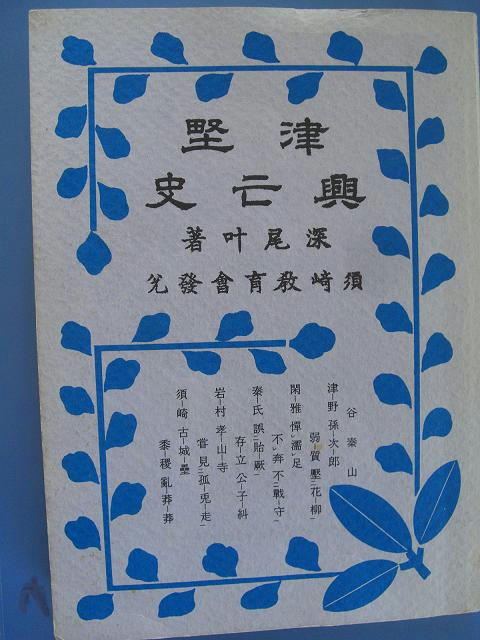 津埜
興亡史
深尾叶著
須崎教育會發兌
谷秦山
津野孫次郎
弱質壓花柳
閑雅憚濡足
不奔不戰守
秦氏誤貽厥
存立公子糾
岩村孝山寺
嘗見孤兎走
須崎古城壘
黍稷亂莽莽